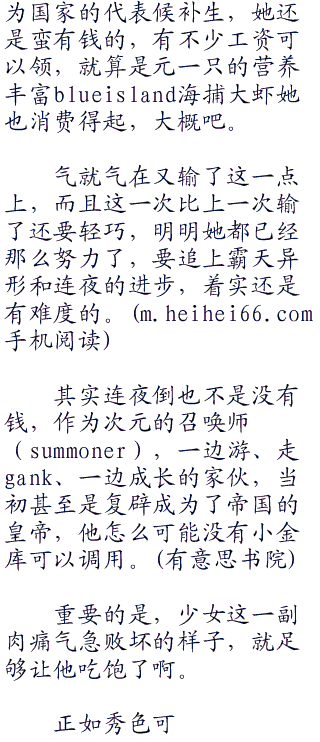 为国家的代表候补生，她还
是蛮有钱的，有不少工资可
以领，就算是元一只的营养
丰富blueisland海捕大虾她
也消费得起，大概吧。
气就气在又输了这一点
上，而且这一次比上一次输
了还要轻巧，明明她都已经
那么努力了，要追上霸天异
形和连夜的进步，着实还是
有难度的。(m.heihei66.com
手机阅读)
其实连夜倒也不是没有
钱，作为次元的召唤师
（summoner），一边游、走
gank、一边成长的家伙，当
初甚至是复辟成为了帝国的
皇帝，他怎么可能没有小金
库可以调用。(有意思书院)
重要的是，少女这一副
肉痛气急败坏的样子，就足
够让他吃饱了啊。
正如秀色可